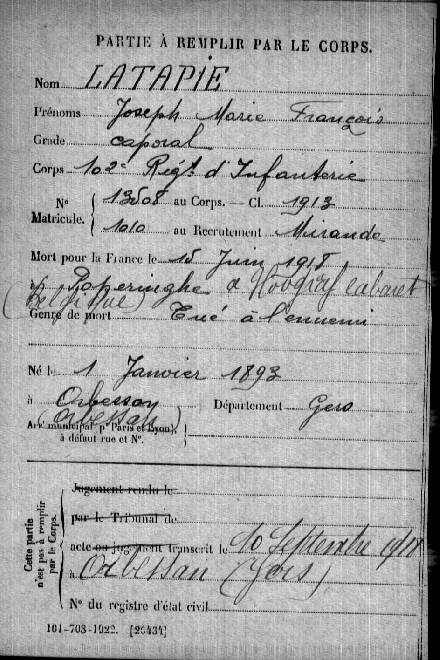 PARTIE À REMPLIR PAR LE CORPS.
Nom LATAPIE
Prénoms Joseph Marie François
Grade caporal
Corps 102e Régt d'Infanterie
N° Matricule. { 13508 au Corps. — Cl. 1913
1010 au Recrutement Mirande
Mort pour la France le 15 Juin 1918
à Poperinghe à Hoogref cabaret
(Belgique)
Genre de mort Tué à l'ennemi
Né le 1 Janvier 1893
à Orbessan Département Gers
(Orbessan)
Arrt municipal (pr Paris et Lyon), à défaut rue et N°.
Cette partie n'est pas à remplir par le Corps.
Jugement rendu le
par le Tribunal de
acte ou jugement transcrit le 10 Septembre 1918
à Orbessan (Gers)
N° du registre d'état civil
101-708-1922. [26434]